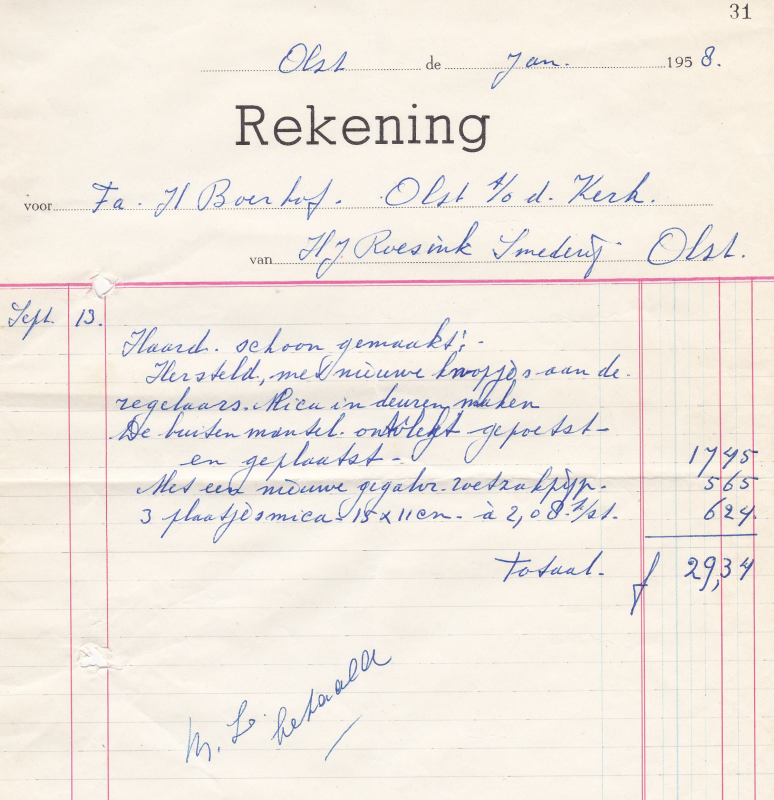 31
Olst de Jan. 1958.
Rekening
voor Fa. H Boerhof. Olst t/o d. Kerk.
van HJ Roesink Smederij Olst.
Sept. 13.
Haard. schoon gemaakt; -
Hersteld, met nieuwe knopjes aan de.
regelaars. Mica in deuren maken
De buiten mantel. gepoetst -
en geplaatst - 17 45
Met een nieuwe gegalv. roetzakpijp. 5 65
3 plaatjes mica - 15 x 11 cm. - à 2,08. p/st. 6 24.
Totaal. f 29,34
betaald